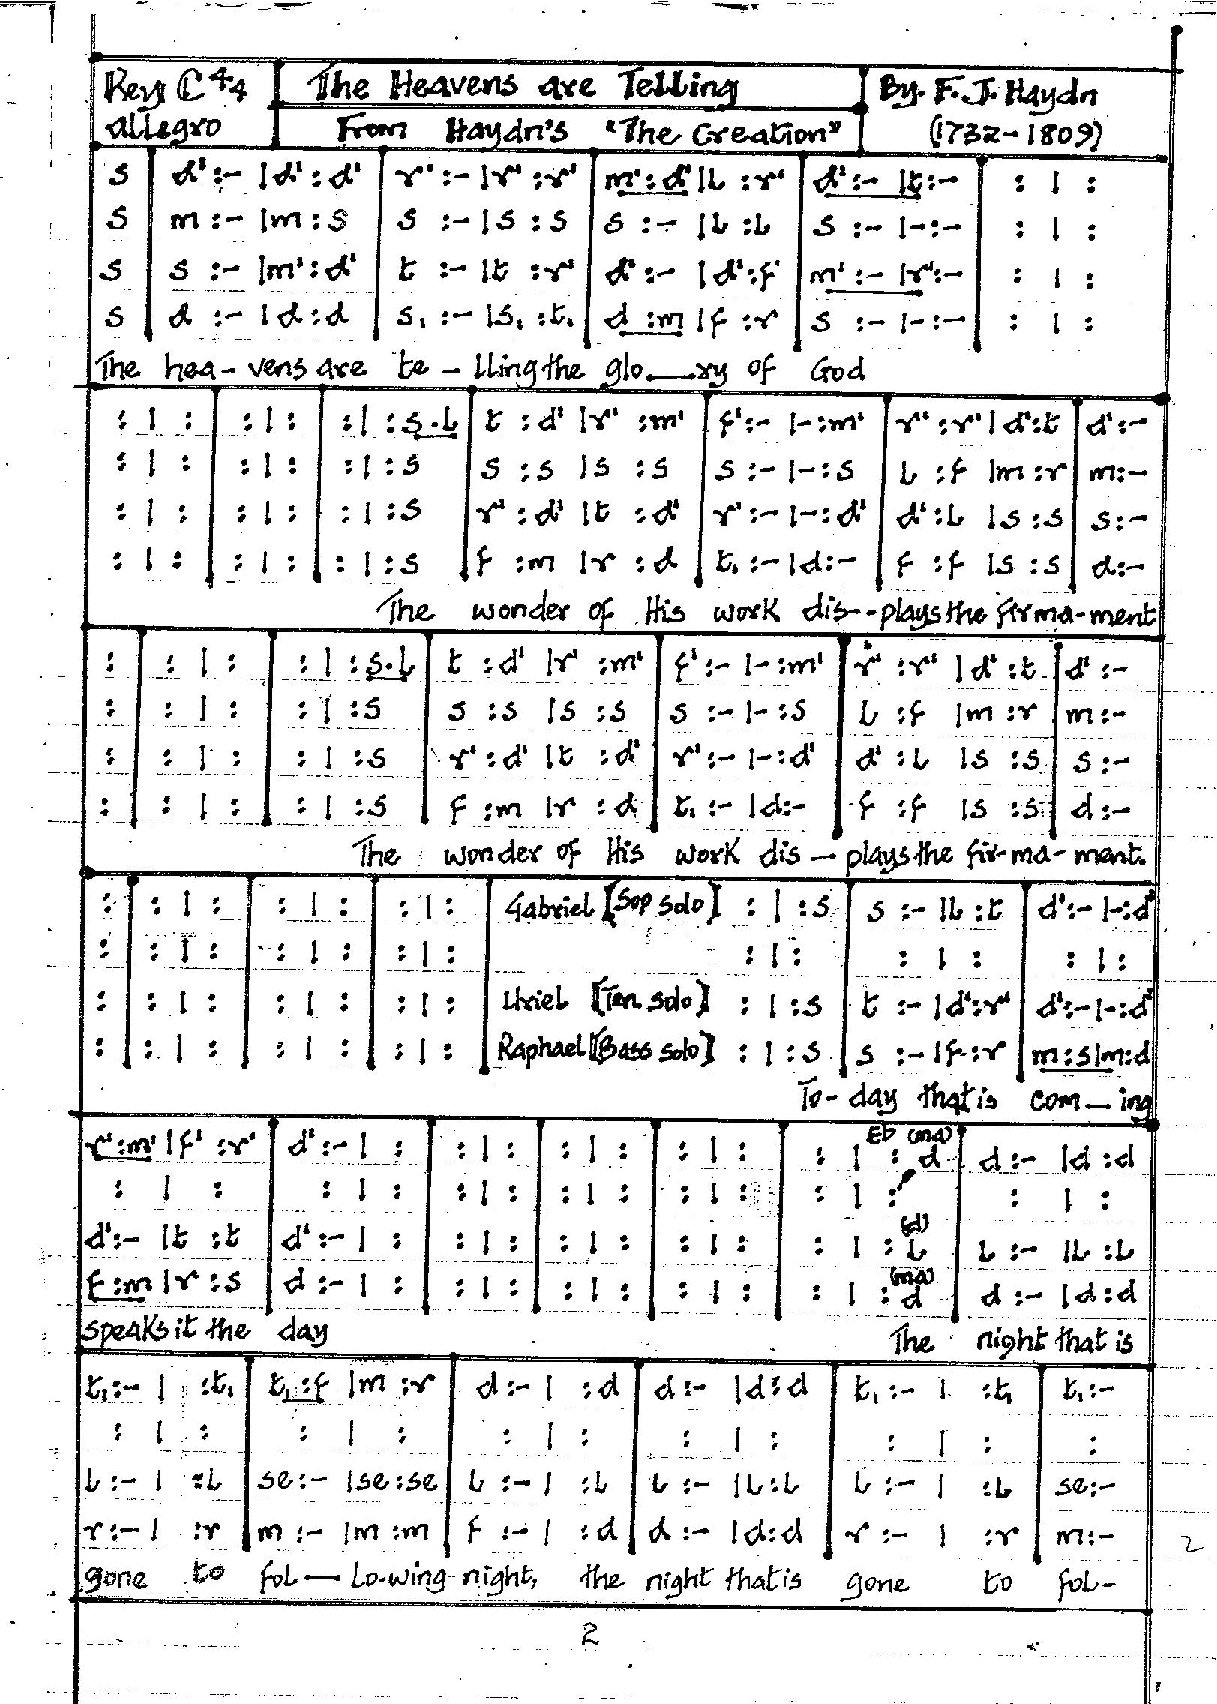 Key C 4/4
The Heavens are Telling
By. F. J. Haydn
allegro
From Haydn's "The Creation"
(1732-1809)
s | d' :- |d' : d' | r' :- |r' : r' | m' : d' |L : r' | d' :- |t :- | : | :
s | m :- |m : s | s :- |s : s | s :- |L : L | s :- |- :- | : | :
s | s :- |m' : d' | t :- |t : r' | d' :- |d' : f' | m' :- |r' :- | : | :
s | d :- |d : d | s₁ :- |s₁ : t₁ | d : m |f : r | s :- |- :- | : | :
The hea-vens are te-lling the glo-ry of God
: | : | : | : | : | : s.L | t : d' |r' : m' | f' :- |- : m' | r' : r' |d' : t | d' :-
: | : | : | : | : | : s | s : s |s : s | s :- |- : s | L : f |m : r | m :-
: | : | : | : | : | : s | r' : d' |t : d' | r' :- |- : d' | d' : L |s : s | s :-
: | : | : | : | : | : s | f : m |r : d | t₁ :- |d :- | f : f |s : s | d :-
The wonder of His work dis--plays the firma-ment
: | : | : | : | : s.L | t : d' |r' : m' | f' :- |- : m' | r' : r' |d' : t | d' :-
: | : | : | : | : s | s : s |s : s | s :- |- : s | L : f |m : r | m :-
: | : | : | : | : s | r' : d' |t : d' | r' :- |- : d' | d' : L |s : s | s :-
: | : | : | : | : s | f : m |r : d | t₁ :- |d :- | f : f |s : s | d :-
The wonder of His work dis-plays the fir-ma-ment.
: | : | : | : | : | : | : | Gabriel [Sop solo] : | : s | s :- |L : t | d' :- |- : d'
: | : | : | : | : | : | : | : | : | : | : | : | :
: | : | : | : | : | : | : | Uriel [Ten solo] : | : s | t :- |d' : r' | d' :- |- : d'
: | : | : | : | : | : | : | Raphael [Bass solo] : | : s | s :- |f : r | m : s |m : d
To-day that is com-ing
Eb (ma)
r' : m' |f' : r' | d' :- | : | : | : | : | : | : | : | : | : d | d :- |d : d
: | : | : | : | : | : | : | : | : | : | : | : | : | :
(d)
d' :- |t : t | d' :- | : | : | : | : | : | : | : | : | : L | L :- |L : L
(ma)
f : m |r : s | d :- | : | : | : | : | : | : | : | : | : d | d :- |d : d
speaks it the day The night that is
t₁ :- | : t₁ | t₁ : f |m : r | d :- | : d | d :- |d : d | t₁ :- | : t₁ | t₁ :-
: | : | : | : | : | : | : | : | : | : | :
L :- | : L | se :- |se : se | L :- | : L | L :- |L : L | L :- | : L | se :-
r :- | : r | m :- |m : m | f :- | : d | d :- |d : d | r :- | : r | m :-
gone to fol-lo-wing night, the night that is gone to fol-
2
2